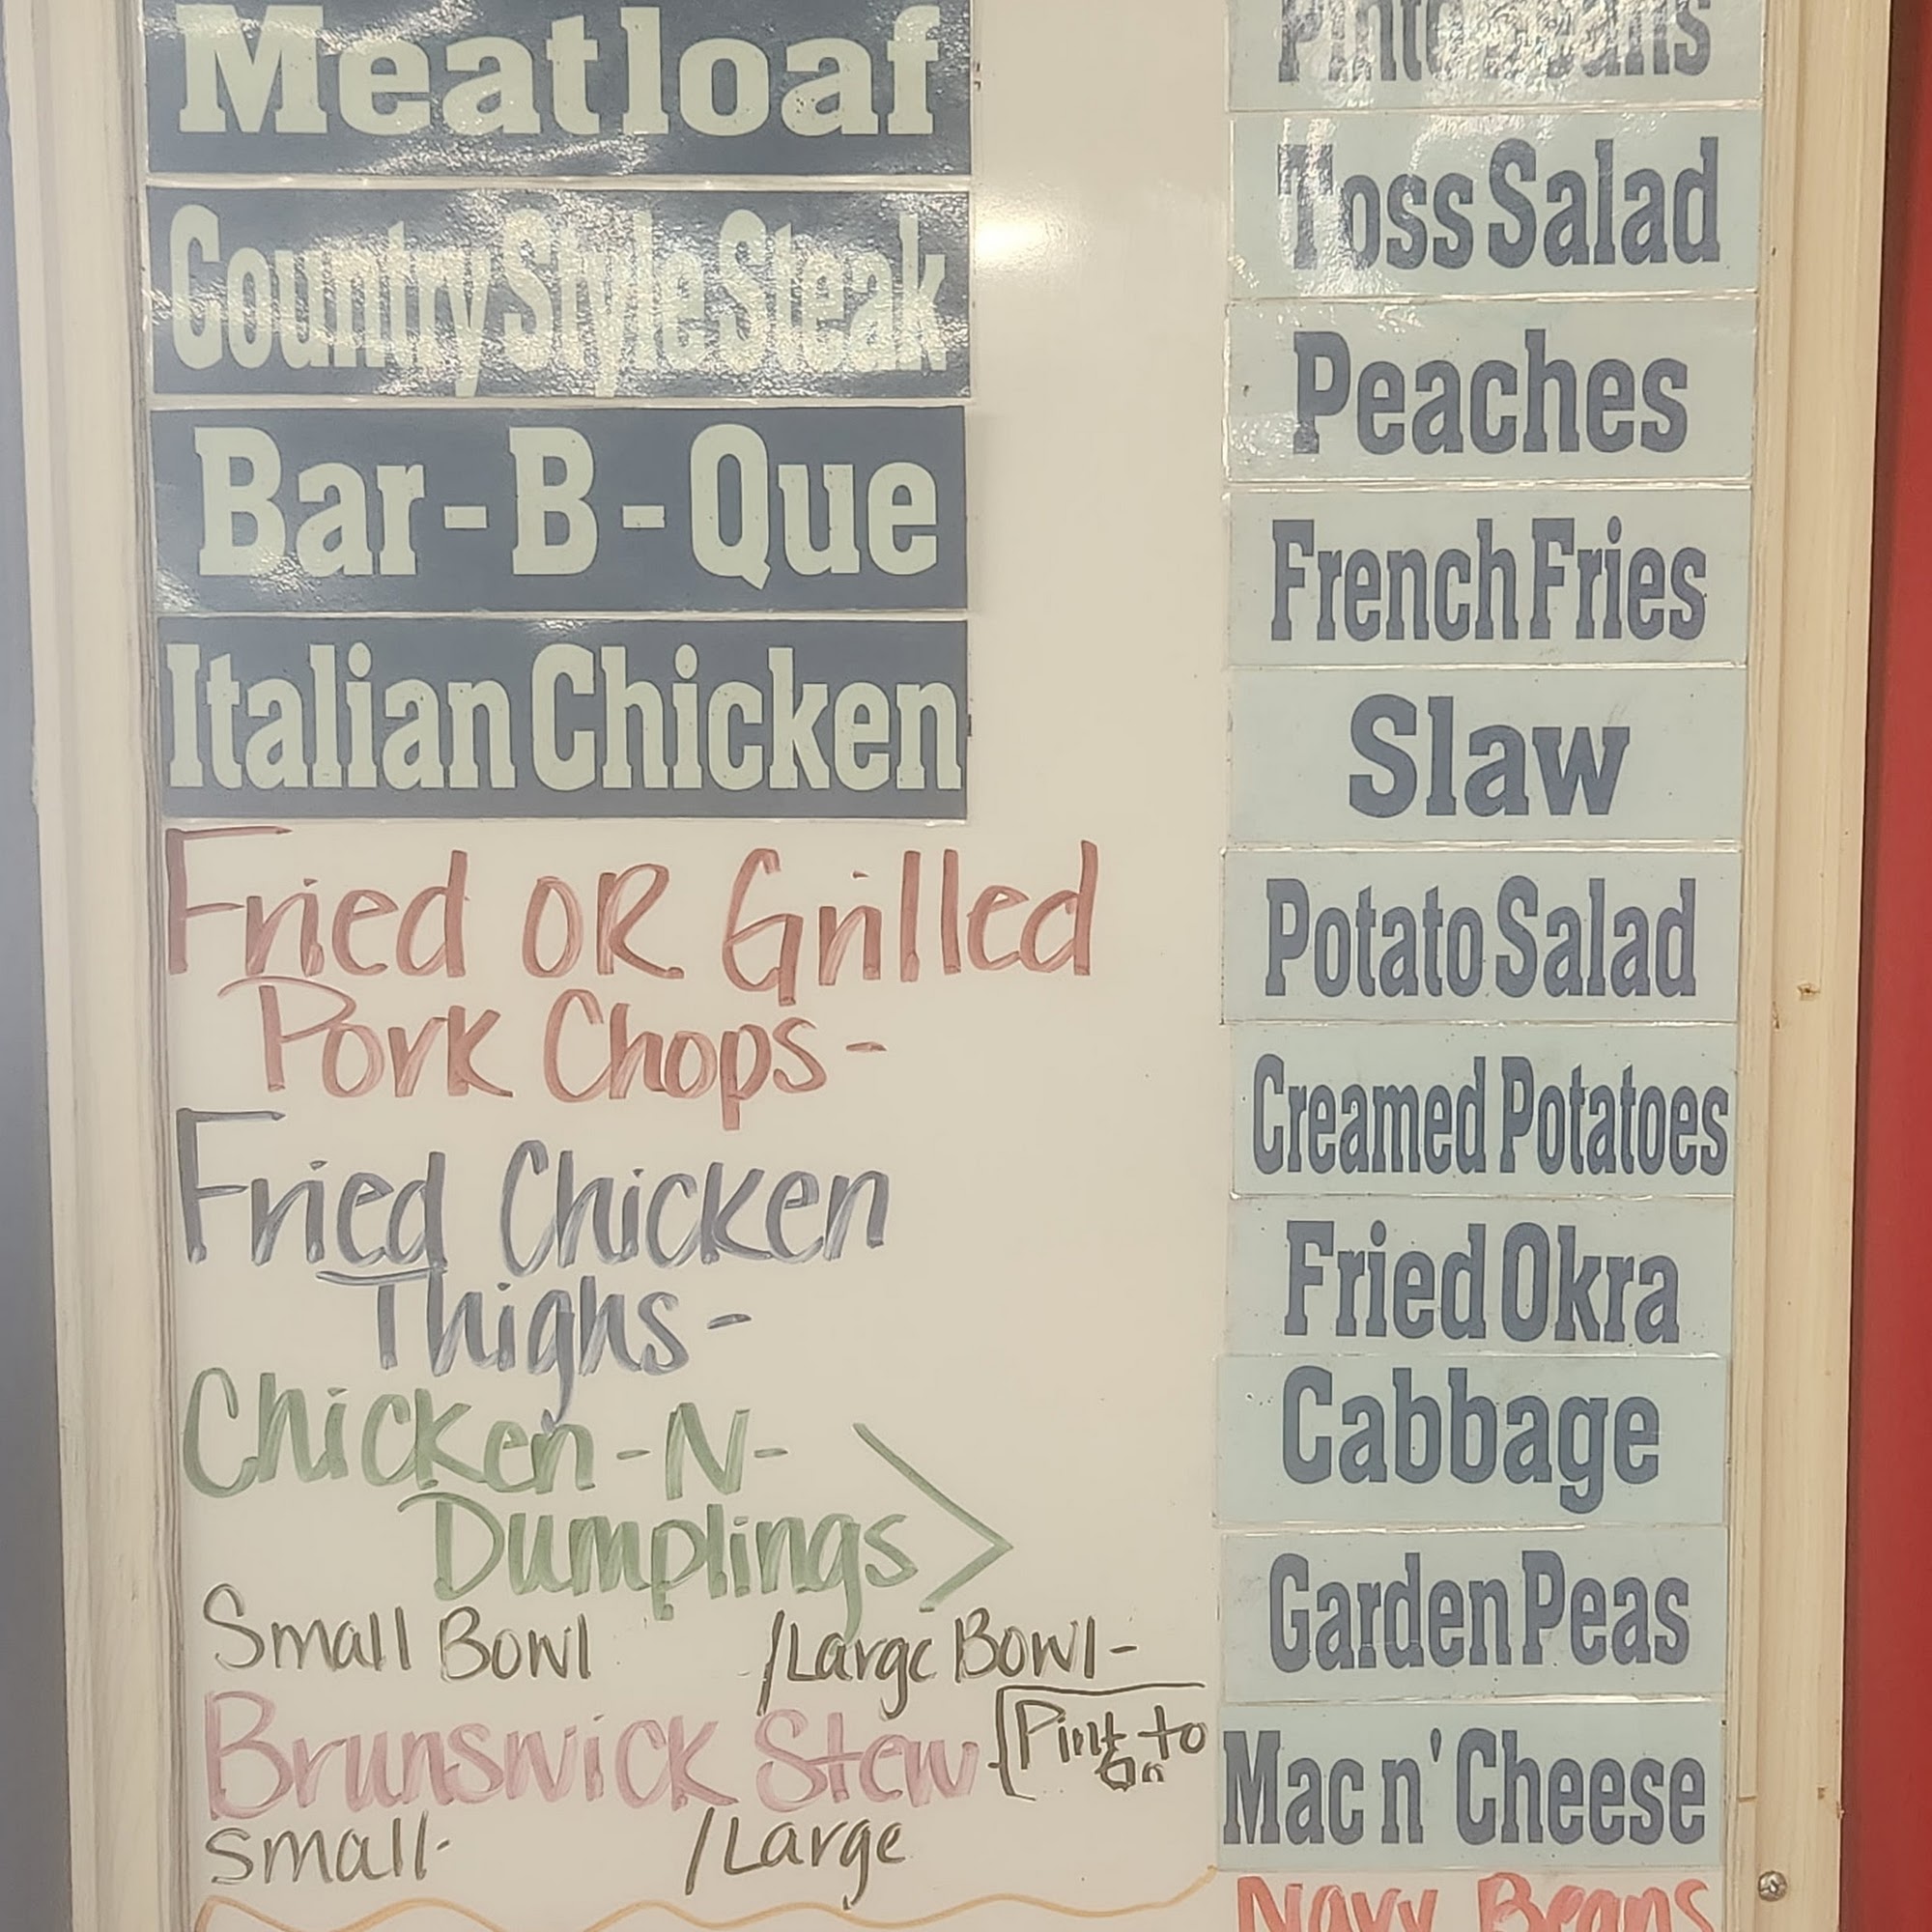 Meatloaf
Country Style Steak
Bar-B-Que
Italian Chicken
Fried OR Grilled
Pork Chops-
Fried Chicken
Thighs-
Chicken-N-
Dumplings
Small Bowl /Large Bowl-
Brunswick Stew
Pint to
Gn
Small- /Large
Pinto Beans
Toss Salad
Peaches
French Fries
Slaw
Potato Salad
Creamed Potatoes
Fried Okra
Cabbage
Garden Peas
Mac n' Cheese
Navy Beans